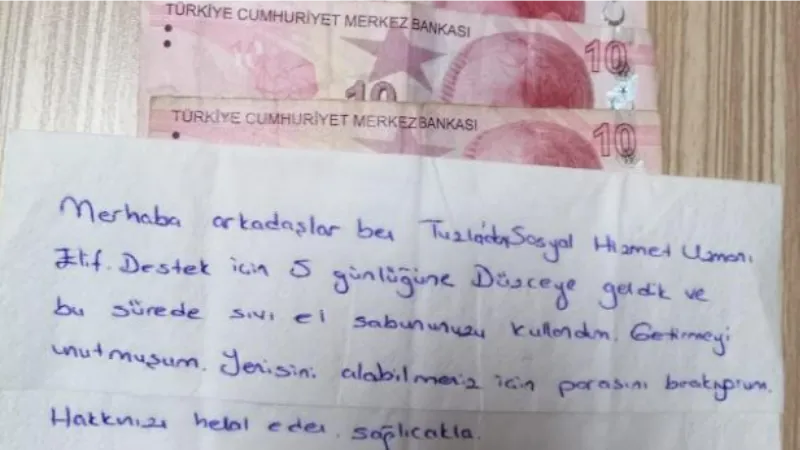 TÜRKİYE CUMHURİYET MERKEZ BANKASI
10
10
TÜRKİYE CUMHURİYET MERKEZ BANKASI
10
Merhaba arkadaşlar ben Tuzla'dan Sosyal Hizmet Uzmanı
Elif. Destek için 5 günlüğüne Düzceye geldik ve
bu sürede sıvı el sabununuzu kullandım. Getirmeyi
unutmuşum. Yenisini alabilmeniz için parasını bırakıyorum.
Hakkınızı helal eder. sağlıcakla.